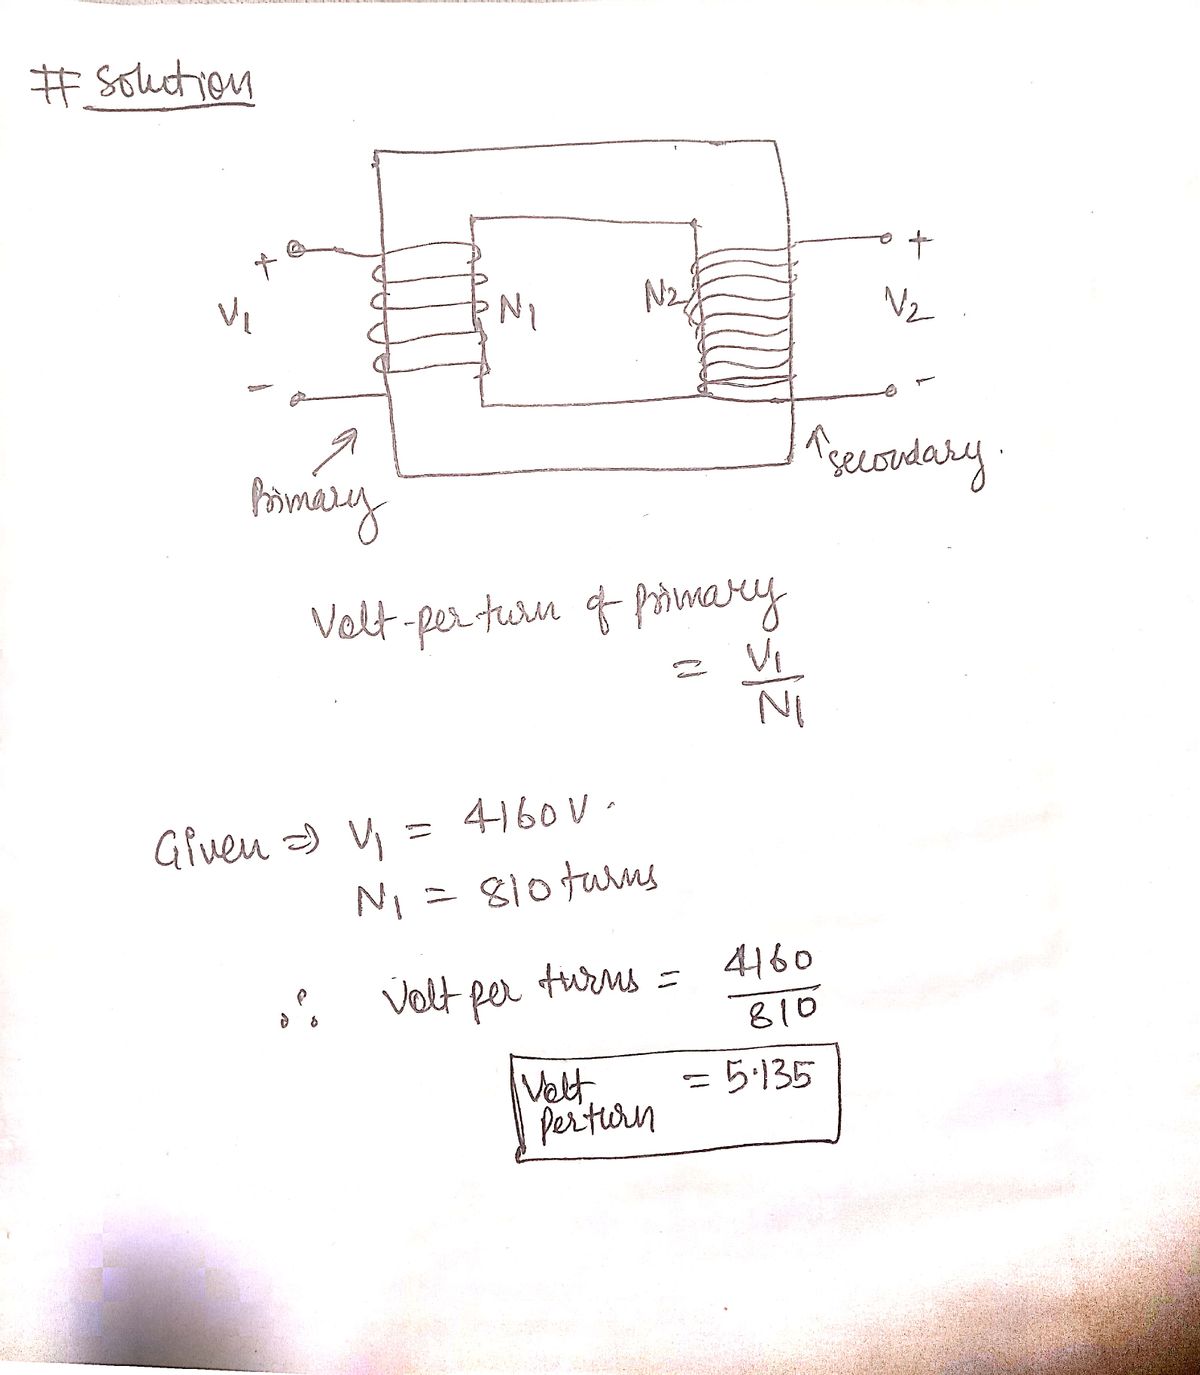 # Solution
+
V1
-
N1
N2
+
V2
-
Primary
secondary.
Volt-per-turn of primary
= V1
N1
Given ⇒ V1 = 4160 V.
N1 = 810 turns
∴ Volt per turns = 4160
810
Volt = 5.135
Per turn